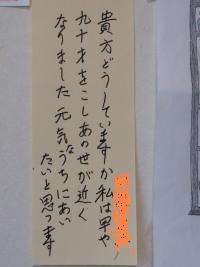 貴方どうしていますか私は早や
九十才をこしあの世が近く
なりました元気なうちにあい
たいと思つます